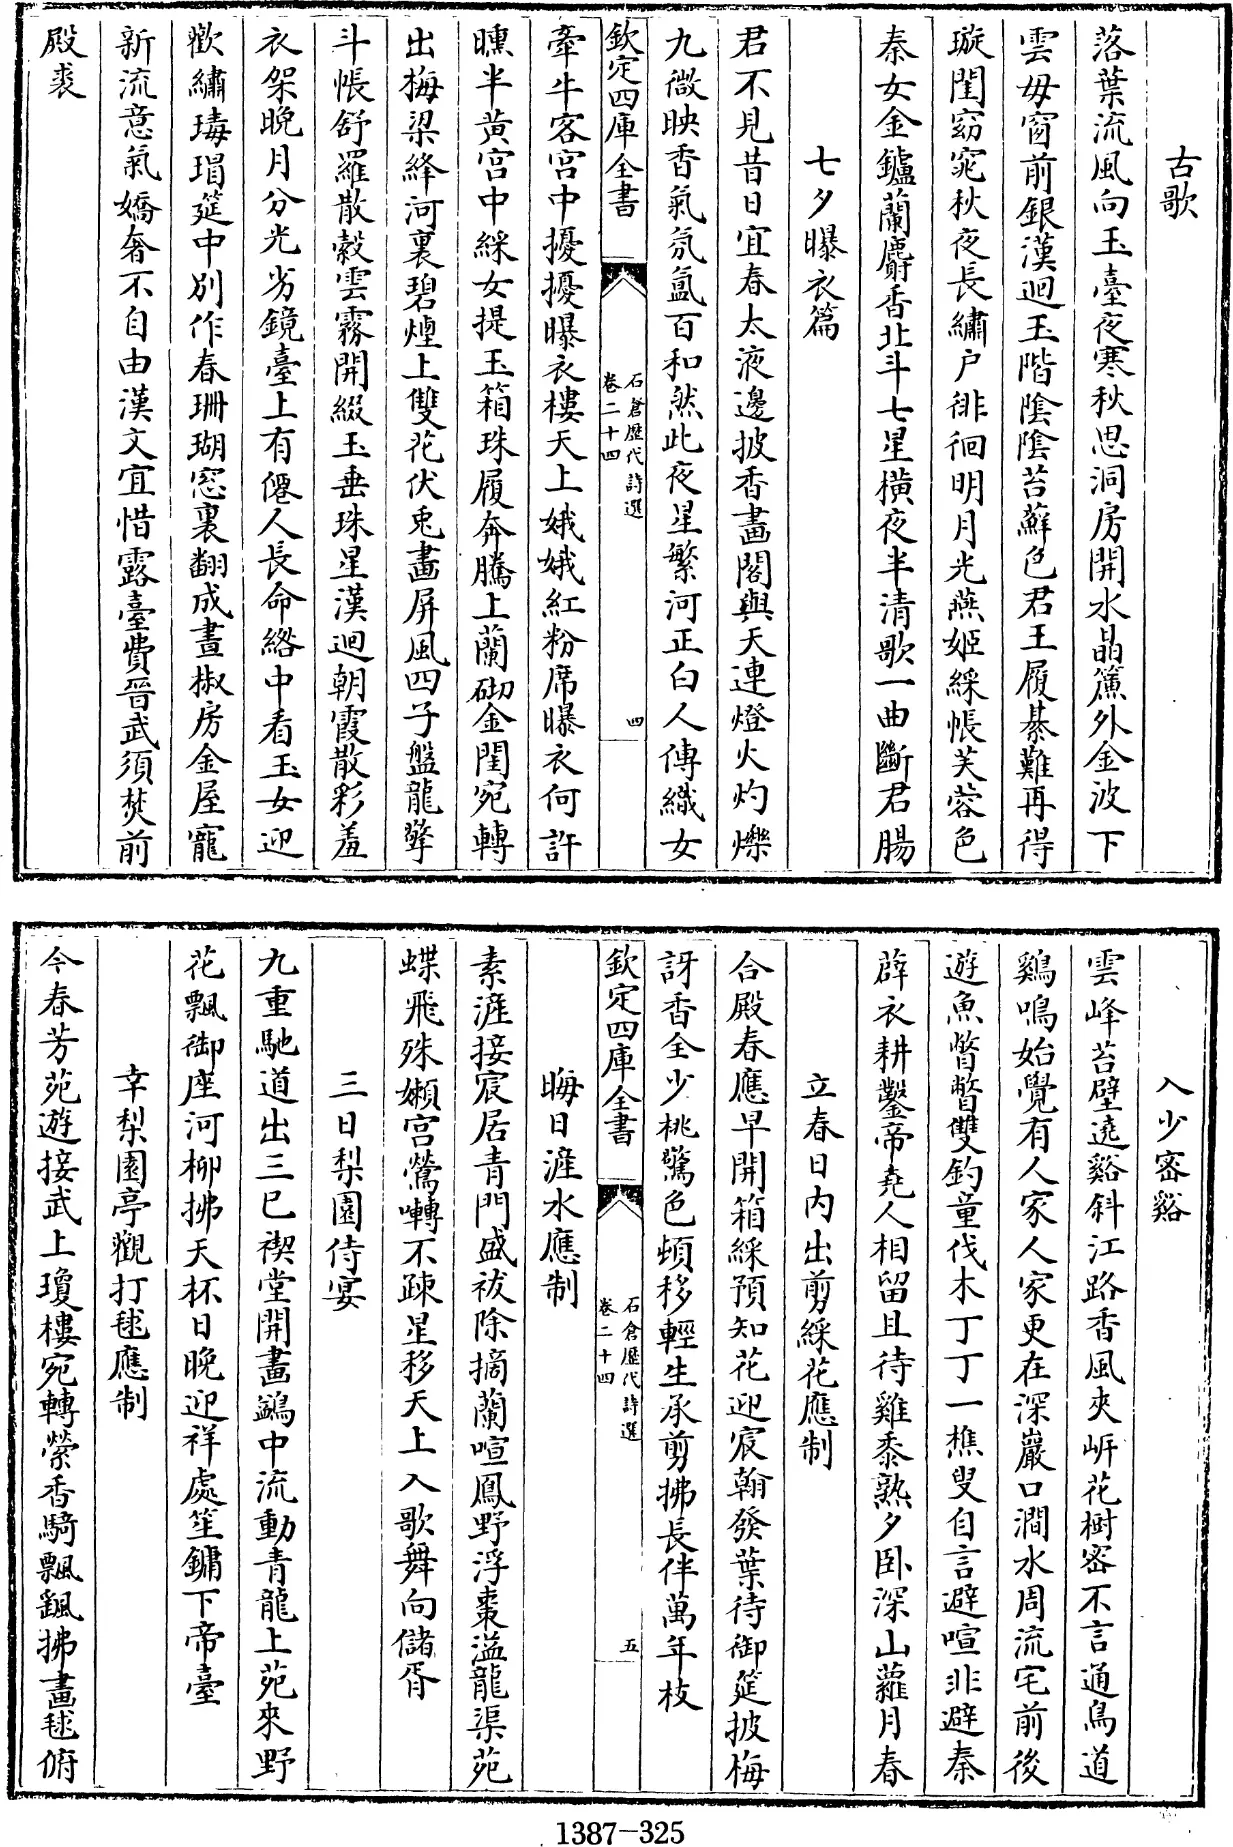 古歌
落葉流風向玉臺夜寒秋思洞房開水晶簾外金波下
雲母窗前銀漢迴玉階陰陰苔蘚色君王履綦難再得
璇閨窈窕秋夜長繡户徘徊明月光燕姬綵帳芙蓉色
秦女金鑪蘭麝香北斗七星橫夜半清歌一曲斷君腸
七夕曝衣篇
君不見昔日宜春太液邊披香畫閣與天連燈火灼爍
九微映香氣氛氳百和然此夜星繁河正白人傳織女
欽定四庫全書
石倉歷代詩選
卷二十四
四
牽牛客宫中擾擾曝衣樓天上娥娥紅粉席曝衣何許
曛半黄宫中綵女提玉箱珠履奔騰上蘭砌金閨宛轉
出梅梁絳河裏碧煙上雙花伏兎畫屏風四子盤龍擎
斗帳舒羅散縠雲霧開綴玉垂珠星漢迴朝霞散彩羞
衣架晚月分光劣鏡臺上有僊人長命綹中看玉女迎
歡繡瑇瑁筵中别作春珊瑚窓裏翻成晝椒房金屋寵
新流意氣嬌奢不自由漢文宜惜露臺費晉武須焚前
殿裘
入少密谿
雲峰苔壁遶谿斜江路香風夾岍花樹密不言通鳥道
鷄鳴始覺有人家人家更在深巖口澗水周流宅前後
遊魚瞥瞥雙釣童伐木丁丁一樵叟自言避喧非避秦
薜衣耕鑿帝堯人相留且待雞黍熟夕卧深山蘿月春
立春日内出剪綵花應制
合殿春應早開箱綵預知花迎宸翰發葉待御筵披梅
訝香全少桃驚色頓移輕生承剪拂長伴萬年枝
欽定四庫全書
石倉歷代詩選
卷二十四
五
晦日滻水應制
素滻接宸居青門盛祓除摘蘭喧鳳野浮棗溢龍渠苑
蝶飛殊嬾宫鶯囀不疎星移天上入歌舞向儲胥
三日梨園侍宴
九重馳道出三巳禊堂開畫鷁中流動青龍上苑來野
花飄御座河柳拂天杯日晚迎祥處笙鏞下帝臺
幸梨園亭觀打毬應制
今春芳苑遊接武上瓊樓宛轉縈香騎飄颻拂畫毬俯
1387-325